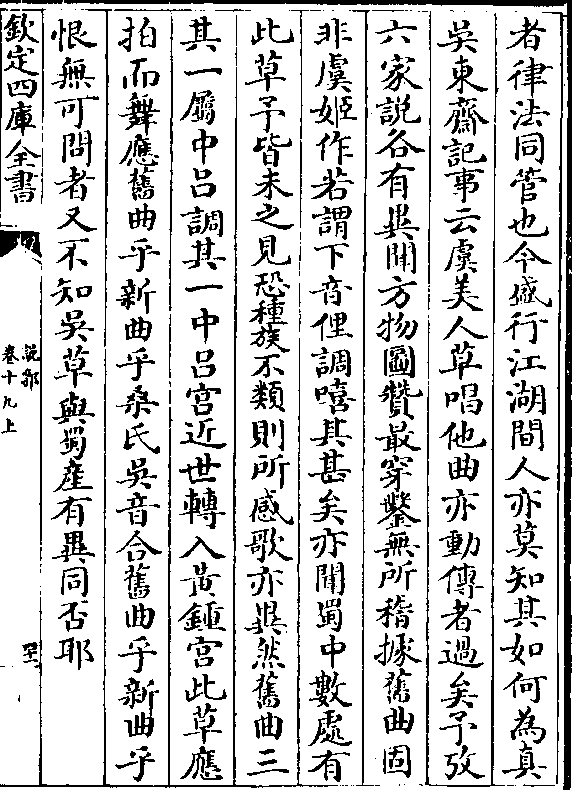 者律法同管也今盛行江湖間人亦莫知其如何為真
吳東齋記事云虞美人草唱他曲亦動傳者過矣予攷
六家說各有異聞方物圖贊最穿鑿無所稽據舊曲固
非虞姬作若謂下音俚調嘻其甚矣亦聞蜀中數處有
此草予皆未之見恐種族不類則所感歌亦異然舊曲三
其一屬中吕調其一中吕宫近世轉入黃鍾宫此草應
拍而舞應舊曲乎新曲乎桑氏吳音合舊曲乎新曲乎
恨無可問者又不知吳草與蜀産有異同否耶
欽定四庫全書
說郛
卷十九上